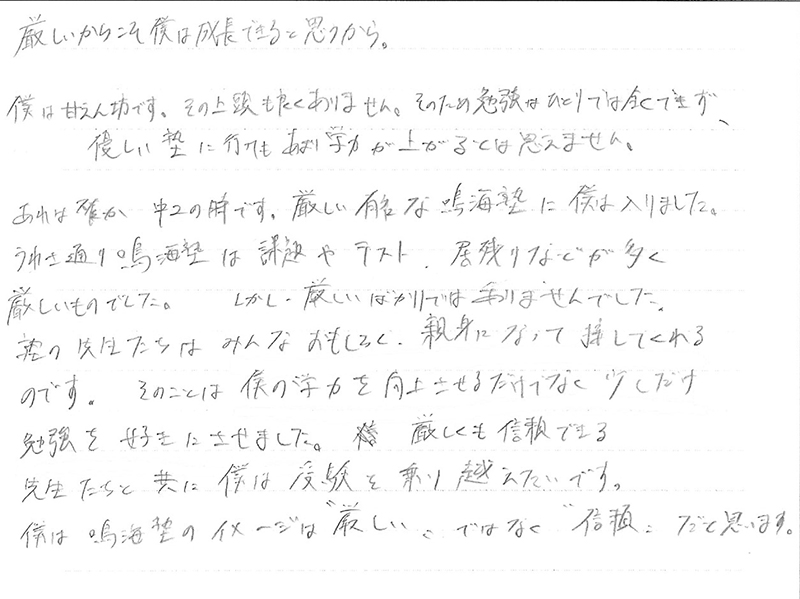 厳しいからこそ僕は成長できると思うから。
僕は甘えん坊です。その上頭も良くありません。そのため勉強はひとりでは全くできず、
優しい塾に行ってもあまり学力が上がるとは思えません。
あれは確か中2の時です。厳しい有名な鳴海塾に僕は入りました。
うわさ通り鳴海塾は課題やテスト、居残りなどが多く
厳しいものでした。しかし、厳しいばかりではありませんでした。
塾の先生たちはみんなおもしろく、親身になって接してくれる
のです。そのことは僕の学力を向上させるだけでなく少しだけ
勉強を好きにさせました。厳しくも信頼できる
先生たちと共に僕は受験を乗り越えたいです。
僕は鳴海塾のイメージは"厳しい"ではなく"信頼"だと思います。